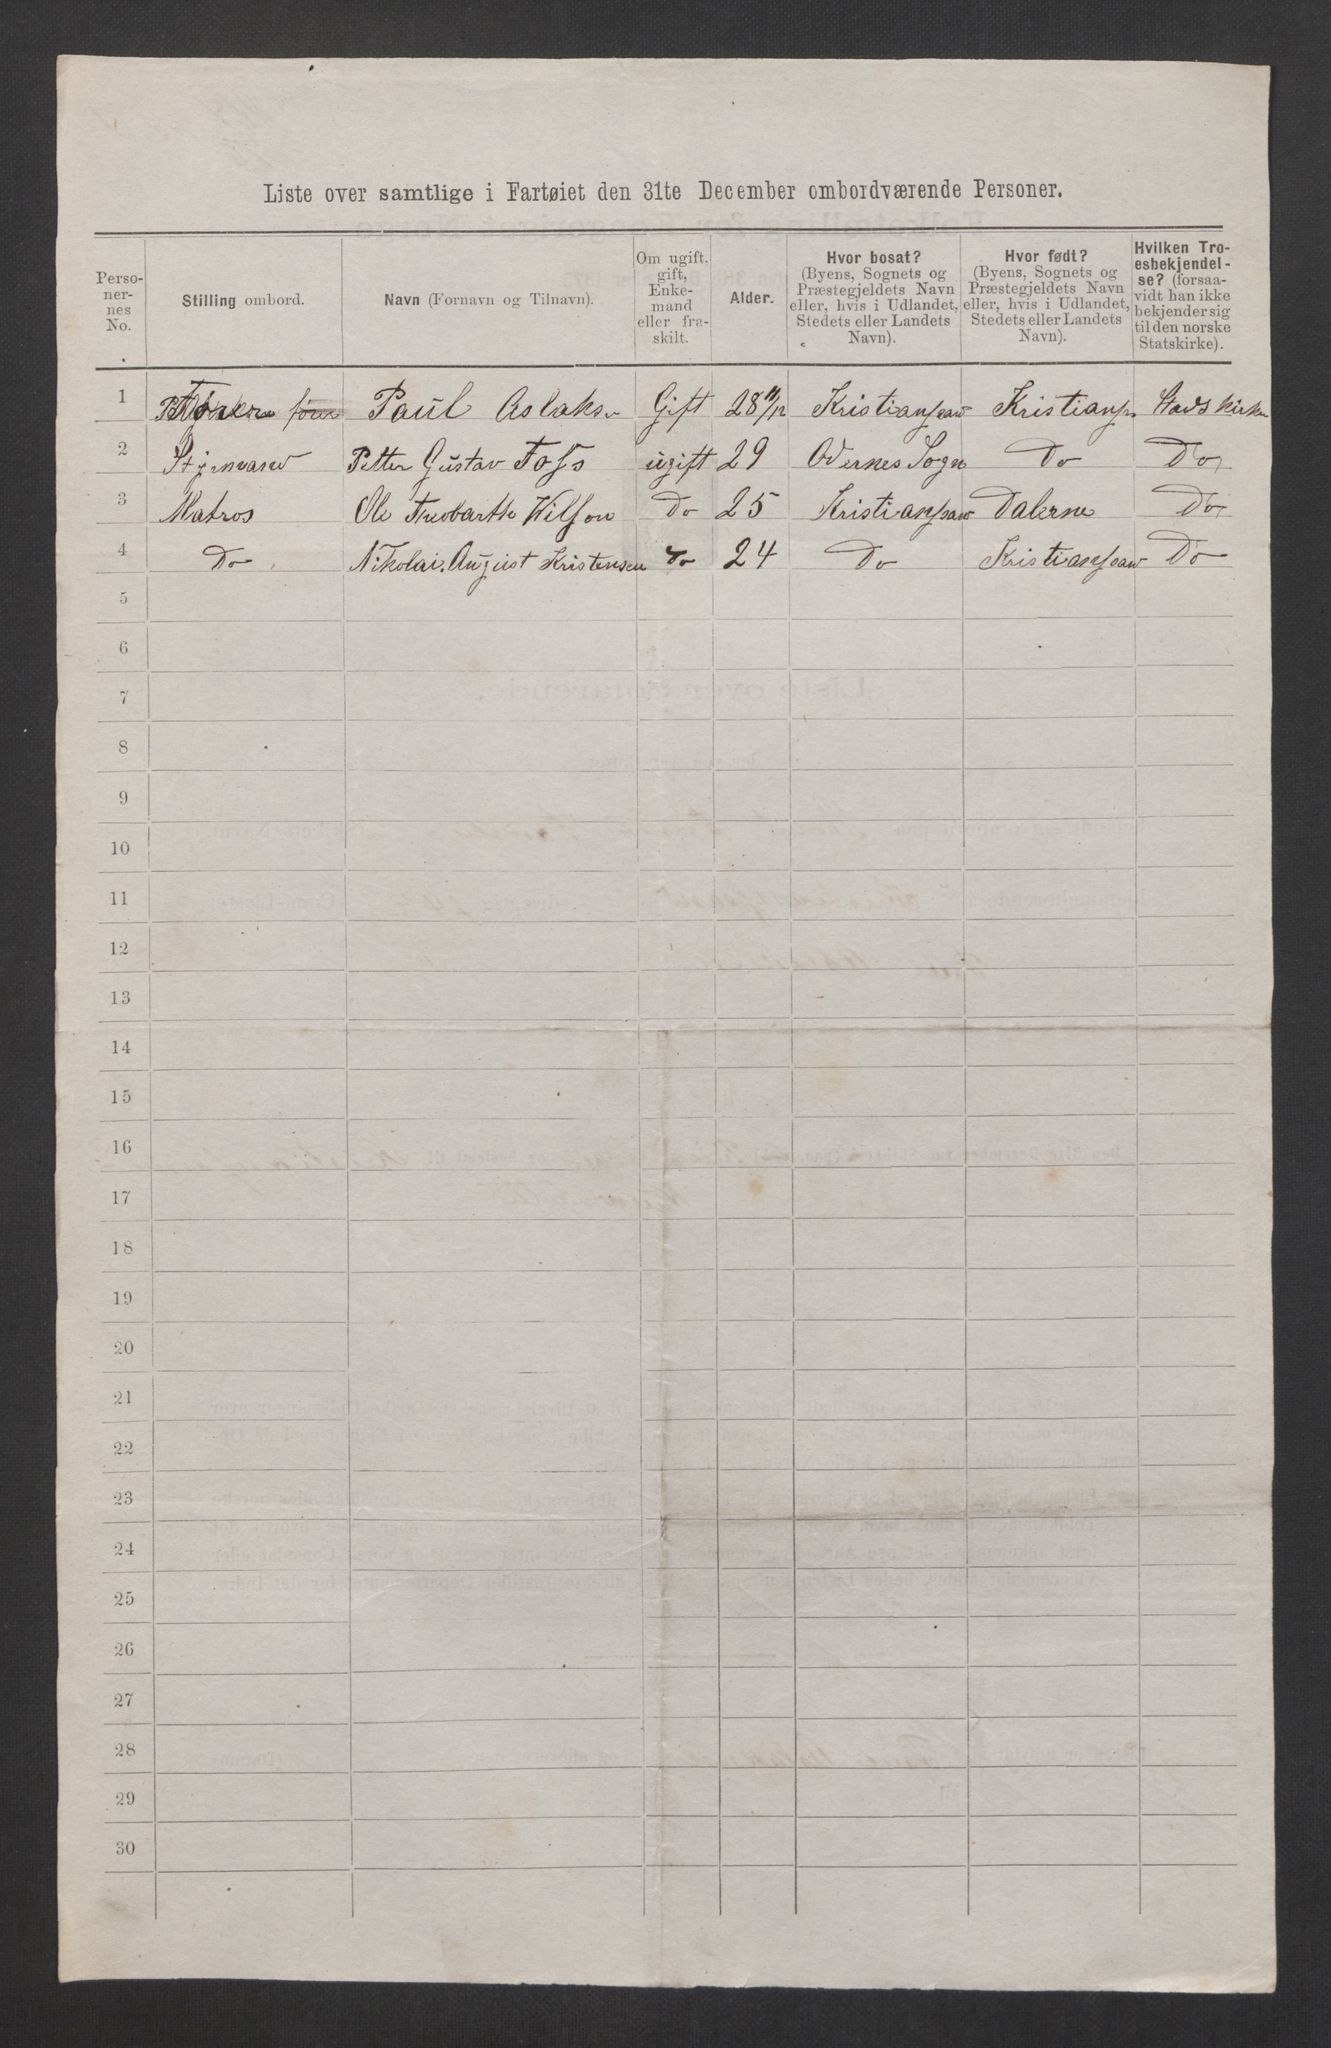 Liste over samtlige i Fartøiet den 31te December ombordværende Personer.
Perso-
ner-
nes
No.
Stilling ombord.
Navn (Fornavn og Tilnavn).
Om ugift,
gift,
Enke-
mand
eller fra-
skilt.
Alder.
Hvor bosat?
(Byens, Sognets og
Præstegjeldets Navn
eller, hvis i Udlandet,
Stedets eller Landets
Navn).
Hvor født?
(Byens, Sognets og
Præstegjeldets Navn
eller, hvis i Udlandet,
Stedets eller Landets
Navn).
Hvilken Tro-
esbekjendel-
se? (forsaa-
vidt han ikke
bekjender sig
til den norske
Statskirke).
1 Paul Aslaksen Gift 28 11/12 Kristianssand Kristianss Stads kirken
2 Petter Gustav Foss ugift 29 Odernes Sogn Do Do
3 Matros Ole Wilson Do 25 Kristianssand Dalerne Do
4 Do Nikolai August Kristensen Do 24 Do Kristianssand Do
5
6
7
8
9
10
11
12
13
14
15
16
17
18
19
20
21
22
23
24
25
26
27
28
29
30